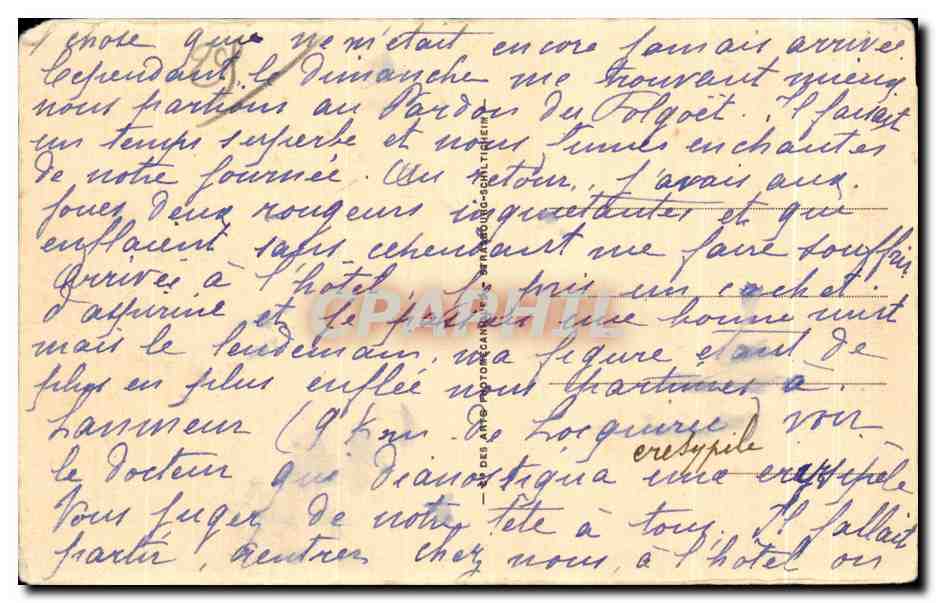 chose que ne m'était encore jamais arrivée
Cependant, le dimanche me trouvant mieux
nous partions au Pardon du Folgoët. Il faisait
un temps superbe et nous fumes enchantés
de notre journée. Au retour, j'avais aux
joues deux rougeurs inquietantes et qui
enflaient sans cependant me faire souffrir
Arrivée à l'hôtel, je pris un cachet
d'aspirine et je passais une bonne nuit
mais le lendemain, ma figure étant de
plus en plus enflée nous partimes à
Lanmeur (9 km de Locquirec) voir
le docteur qui dianostiqua une erysipèle
eresypile
Vous jugez de notre tête à tous. Il fallait
partir, rentrer chez nous, à l'hôtel on
29
ET DES ARTS PHOTOMECANIQUES STRASBOURG-SCHILTIGHEIM
CPAPHIL